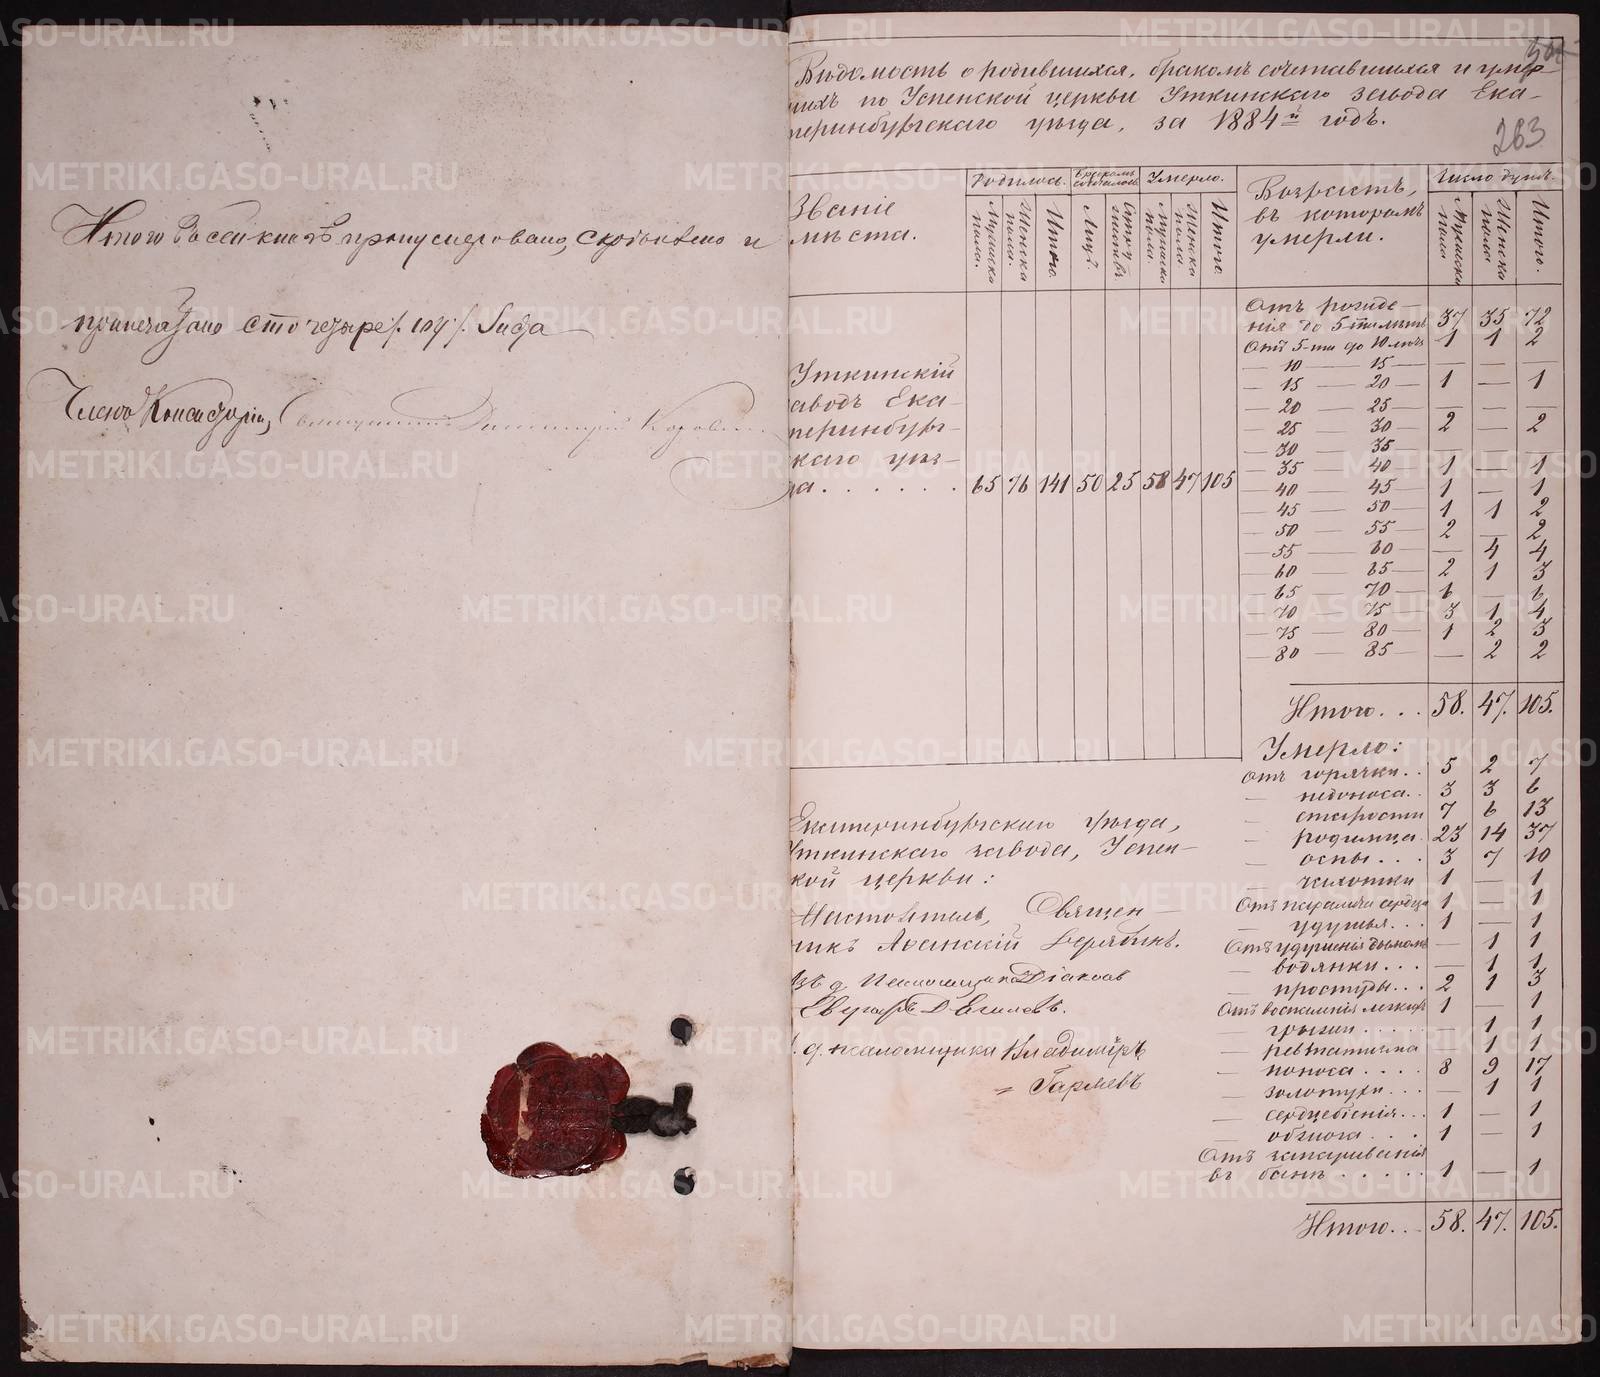 Итого въ сей книгѣ пронумеровано, скрѣплено и
припечатано сто четыре /:104:/ листа
Членъ Консисторіи, Священникъ Димитрій
Вѣдомость о родившихся, бракомъ сочетавшихся и умер-
шихъ по Успенской церкви Уткинскаго завода Ека-
теринбургскаго уѣзда, за 1884й годъ.
263
Званіе мѣста. | Родилось. | Бракомъ сочеталось | Умерло. | Возрастъ, въ которомъ умерли. | Число душъ.
Мужска пола. | Женска пола. | Итого | Лицъ. | Супружествъ | Мужска пола. | Женска пола. | Итого. | Мужска пола | Женска пола | Итого.
Уткинскій
заводъ Ека-
теринбург-
скаго уѣз-
да. . . . . . . 65 76 141 50 25 58 47 105
Отъ рожде-
нія до 5-ти лѣтъ 37 35 72
Отъ 5-ти до 10 лѣтъ 1 1 2
— 10 — 15 — — — —
— 15 — 20 — 1 — 1
— 20 — 25 — — — —
— 25 — 30 — 2 — 2
— 30 — 35
— 35 — 40 — 1 — 1
— 40 — 45 — 1 — 1
— 45 — 50 — 1 1 2
— 50 — 55 — 2 — 2
— 55 — 60 — — 4 4
— 60 — 65 — 2 1 3
— 65 — 70 — 6 — 6
— 70 — 75 — 3 1 4
— 75 — 80 — 1 2 3
— 80 — 85 — — 2 2
Итого. . . 58. 47. 105.
Умерло:
Отъ горячки. . 5 2 7
— недоноса. . 3 3 6
— старости 7 6 13
— родимца. 23 14 37
— оспы. . . 3 7 10
— чахотки 1 — 1
Отъ паралича сердца 1 — 1
— удушья. . . 1 — 1
Отъ удушенія дымомъ — 1 1
— водянки. . . — 1 1
— простуды. . . 2 1 3
Отъ воспаленія легкихъ 1 — 1
— грыжи . . . . — 1 1
— ревматизма — 1 1
— поноса. . . . 8 9 17
— золотухи. . . — 1 1
— сердцебіенія. . . 1 — 1
— обжога. . . . 1 — 1
Отъ запариванія
въ банѣ. . . . . . 1 — 1
Итого. . . 58. 47. 105.
Екатеринбургскаго уѣзда,
Уткинскаго завода, Успен-
ской церкви:
Настоятель, Священ-
никъ
Діаконъ
и. д. псаломщика Владиміръ